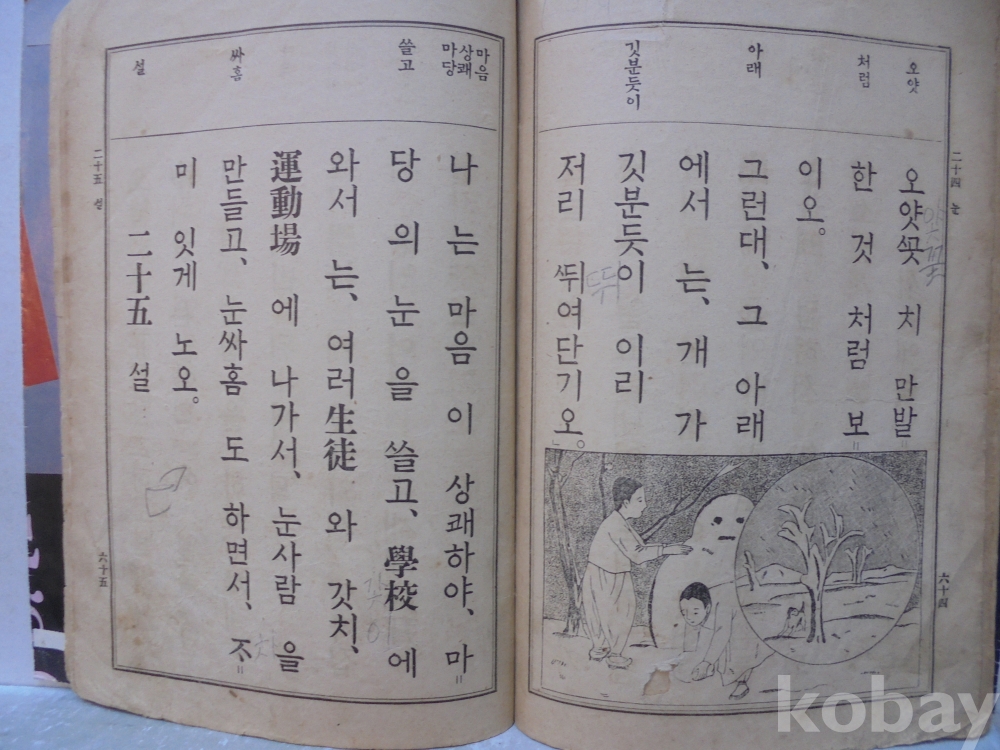 二十四 눈
오얏
처럼
아래
깃분듯이
오얏ᄭᅩᆺ 치 만발＝
한 것 처럼 보＝
이오。
그런대、그 아래
에서 는、개 가
깃분듯이 이리
저리 ᄯᅱ여단기오。
뛰
六十四
마음
상쾌
마당
쓸고
싸홈
설
나 는 마음 이 상쾌하야、마＝
당 의 눈 을 쓸고、學校 에
와서 는、여러 生徒 와 갓치、
運動場 에 나가서、눈사람 을
만들고、눈싸홈 도 하면서、ᄌᆞ＝
미 잇게 노오。
二十五 설
二十五 설
六十五
kobay